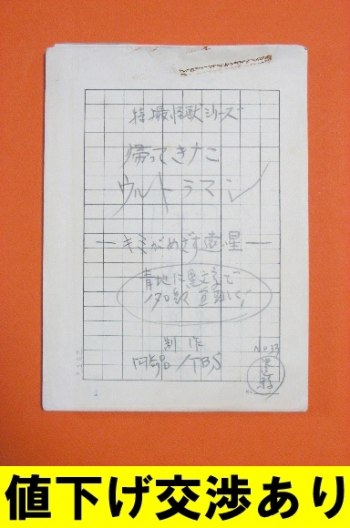 特撮怪獣シリーズ
帰ってきた
ウルトラマン
―キミがめざす遊星―
青地に黒文字で
制作
円谷プロ/TBS
No 33
値下げ交渉あり